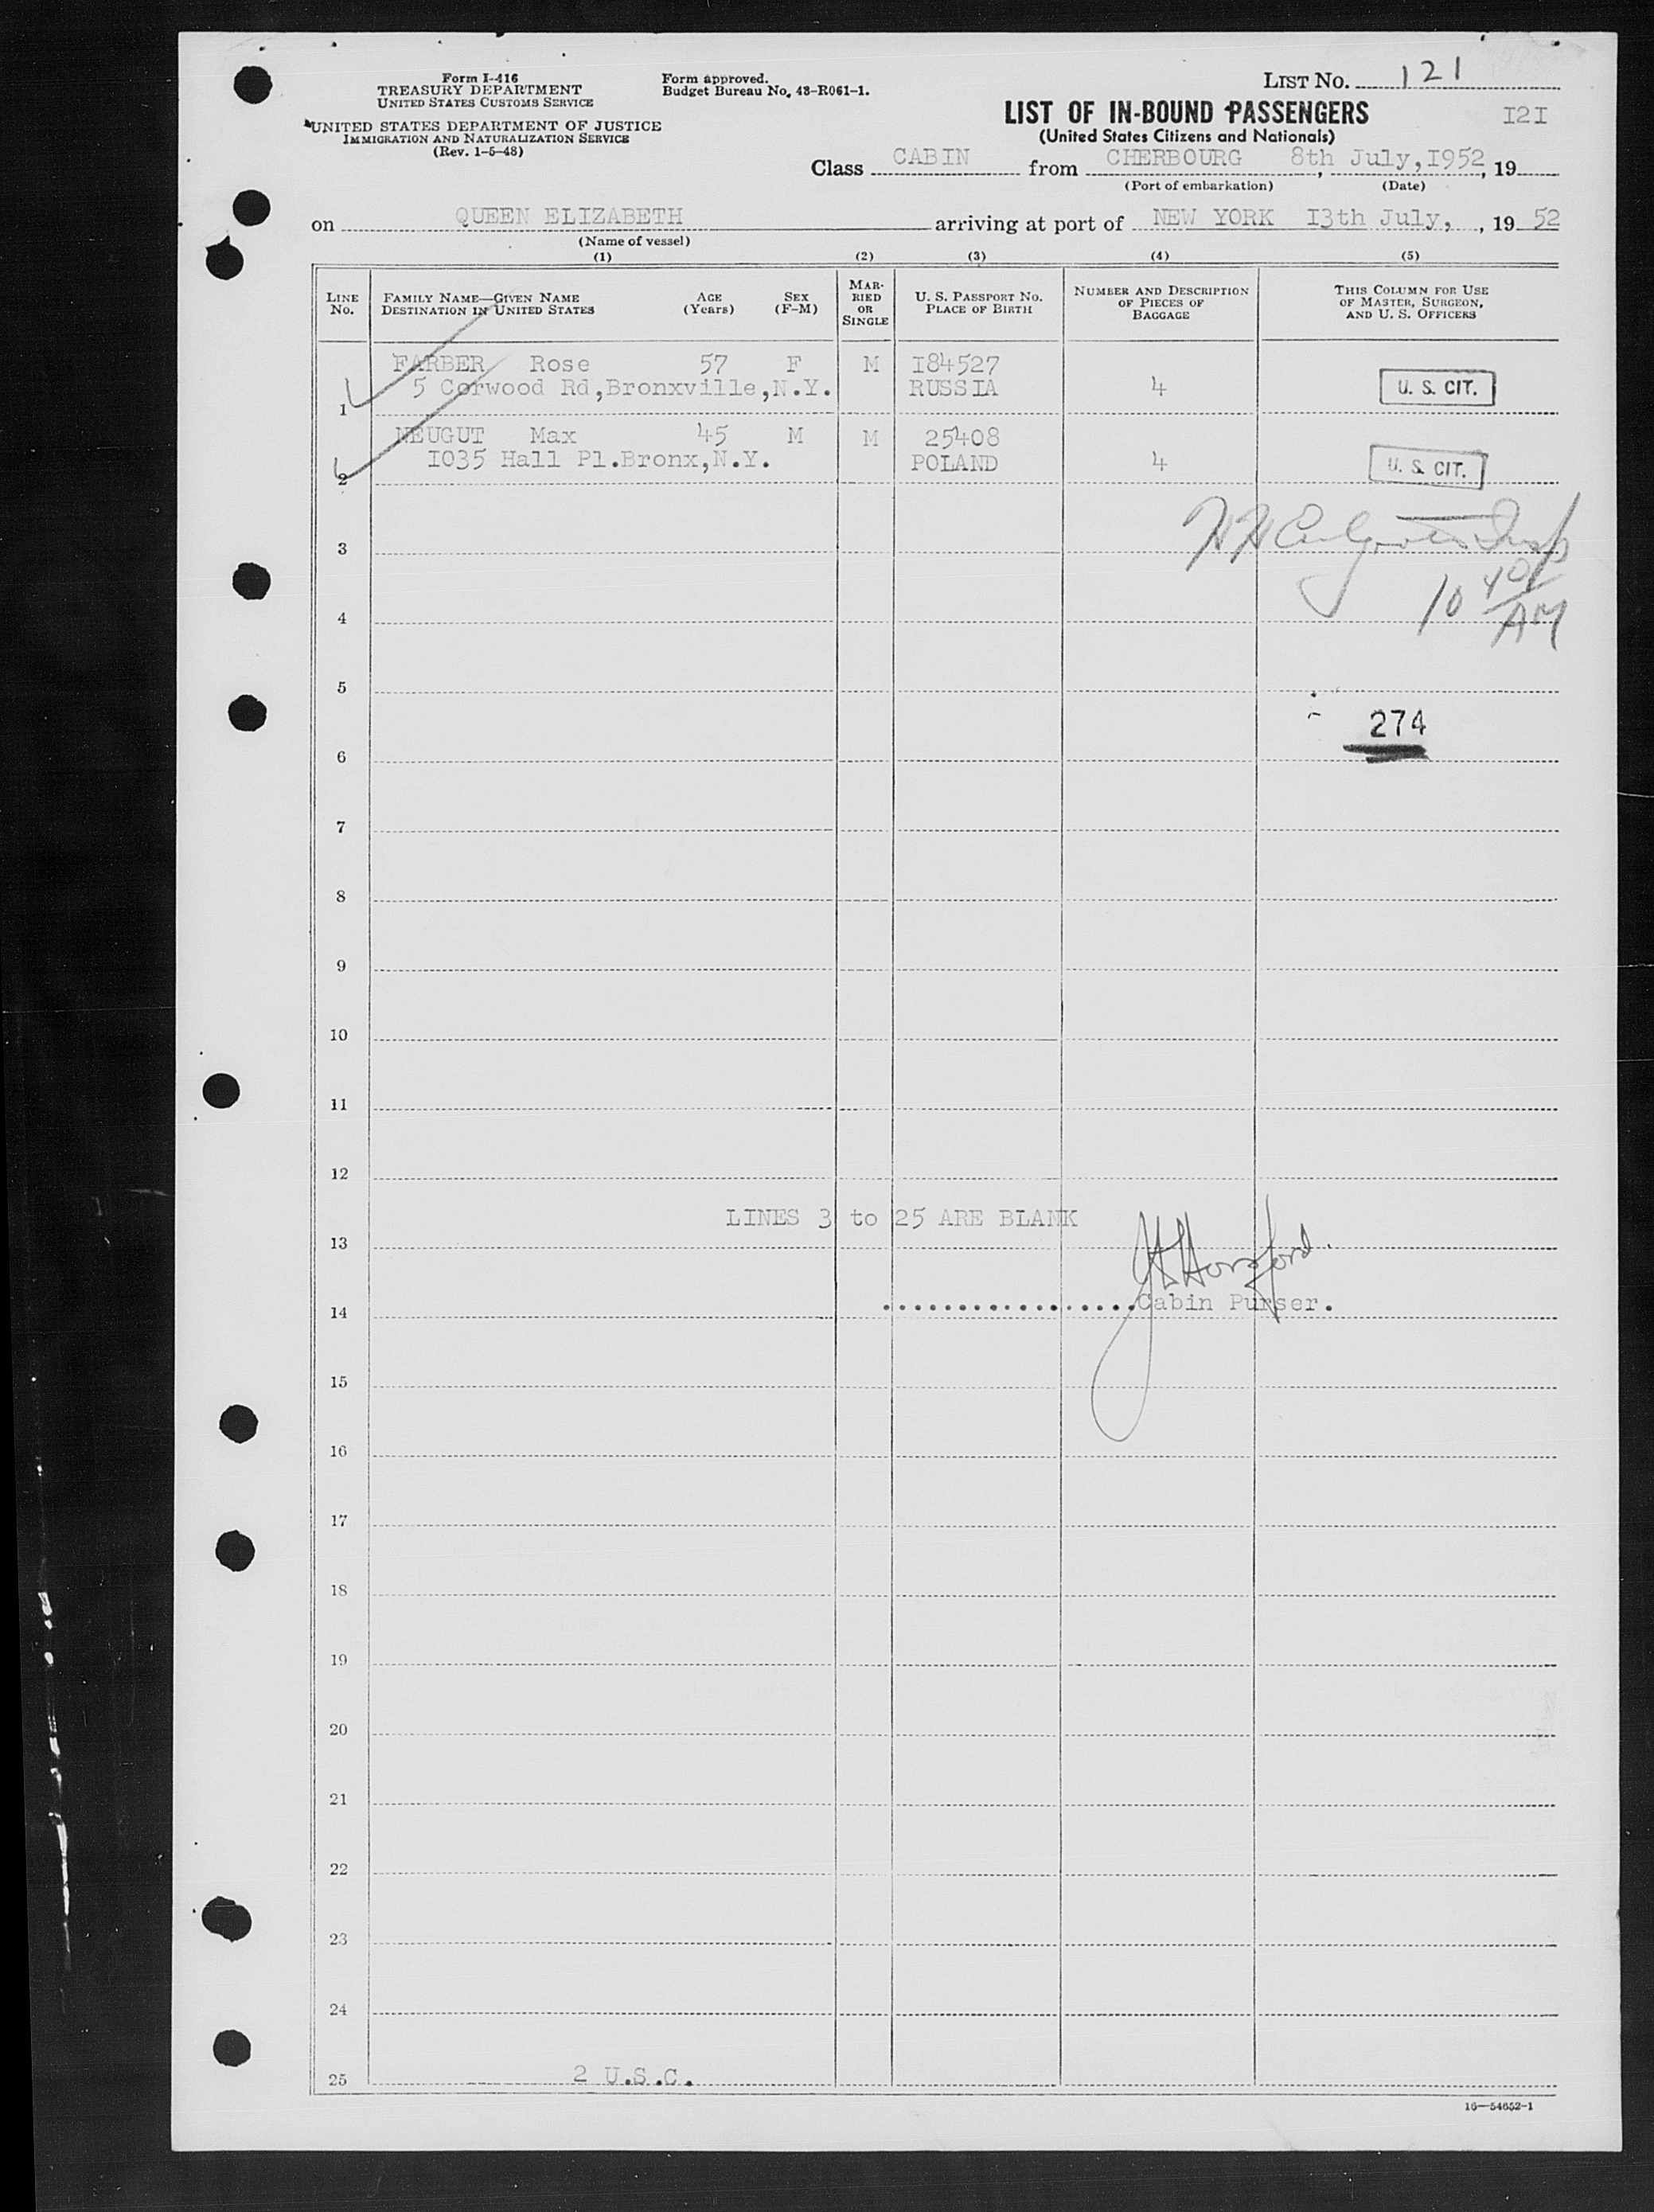 Form I-416
TREASURY DEPARTMENT
UNITED STATES CUSTOMS SERVICE
UNITED STATES DEPARTMENT OF JUSTICE
IMMIGRATION AND NATURALIZATION SERVICE
(Rev. 1-5-48)
Form approved.
Budget Bureau No. 43-R061-1.
LIST No. 121
LIST OF IN-BOUND PASSENGERS I2I
(United States Citizens and Nationals)
Class CABIN from CHERBOURG, 8th July, I952, 19
(Port of embarkation) (Date)
on QUEEN ELIZABETH arriving at port of NEW YORK I3th July, , 19 52
(Name of vessel)
(1) (2) (3) (4) (5)
LINE No. FAMILY NAME—GIVEN NAME DESTINATION IN UNITED STATES AGE (Years) SEX (F-M) MARRIED OR SINGLE U. S. PASSPORT NO. PLACE OF BIRTH NUMBER AND DESCRIPTION OF PIECES OF BAGGAGE THIS COLUMN FOR USE OF MASTER, SURGEON, AND U. S. OFFICERS
FARBER Rose 57 F M I84527
5 Corwood Rd,Bronxville,N.Y. RUSSIA 4 U. S. CIT.
1
NEUGUT Max 45 M M 25408
I035 Hall Pl.Bronx,N.Y. POLAND 4 U. S. CIT.
2
3
10 40
AM
4
5
274
6
7
8
9
10
11
12
LINES 3 to 25 ARE BLANK
13
Horsford.
14 ..................Cabin Purser.
15
16
17
18
19
20
21
22
23
24
25 2 U.S.C.
16—54652-1